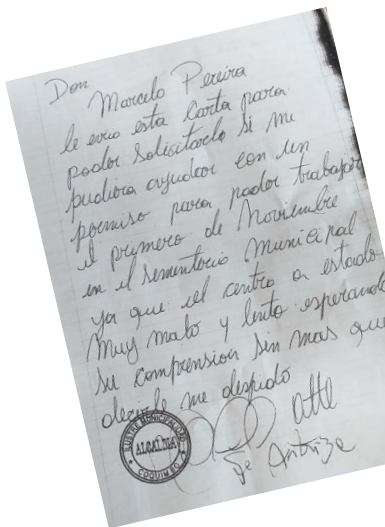 Don
Marcelo Pereira
le envio esta Carta para
poder Solicitarle si me
pudiera ayudar con un
permiso para poder trabajar
el primero de Noviembre
en el sementerio Municipal
ya que el centro a estado
Muy malo y lento esperando
su comprension sin mas que
decirle me despido
Atte
Se Autoriza
ILUSTRE MUNICIPALIDAD
ALCALDIA
COQUIMBO